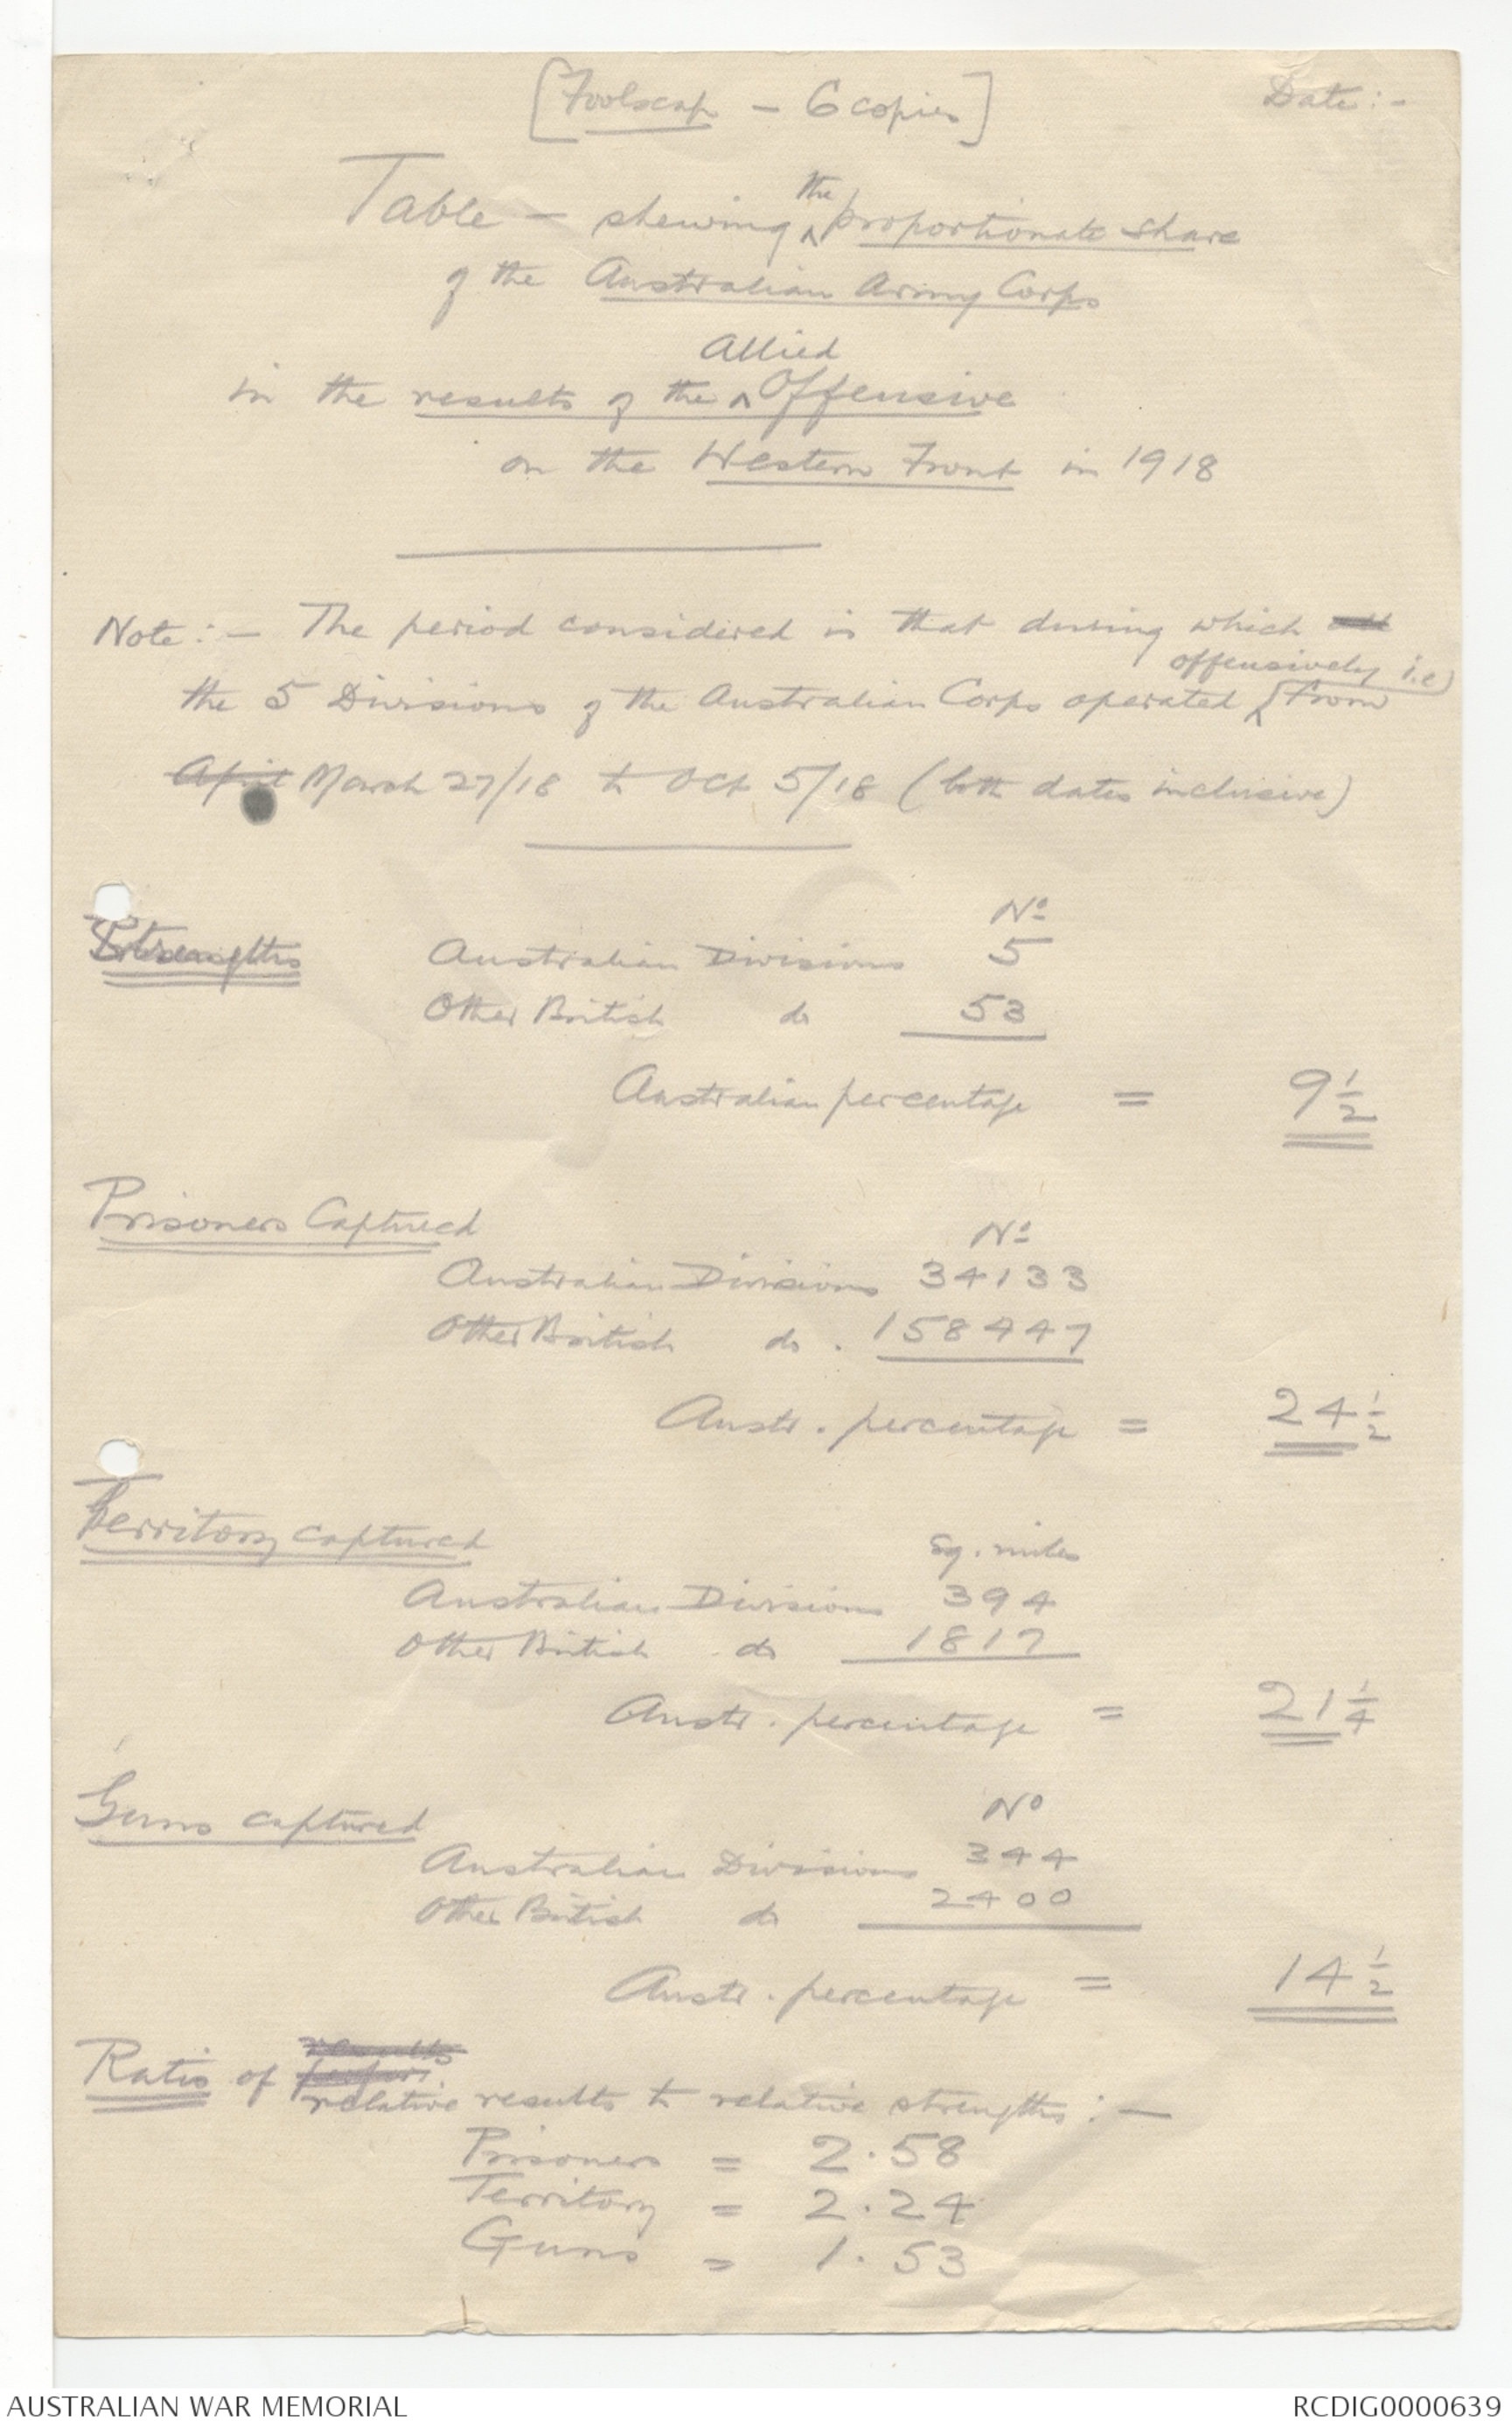 [Foolscap - 6 copies] Date:-
Table - shewing the proportionate share
of the Australian Army Corps
in the results of the Allied Offensive
on the Western Front in 1918
Note:- The period considered is that during which
the 5 Divisions of the Australian Corps operated offensively i.e) from
April March 27/18 to Oct 5/18 (both dates inclusive)
No
Strengths Australian Divisions 5
Other British do 53
Australian percentage = 9 1/2
Prisoners Captured
No
Australian Divisions 34133
Other British do. 158447
Austr. percentage = 24 1/2
Territory captured
Sq. miles
Australian Divisions 394
Other British do 1817
Austr. percentage = 21 1/4
Guns captured
No
Australian Divisions 344
Other British do 2400
Austr. percentage = 14 1/2
results
Ratio of perfor.
relative results to relative strengths:-
Prisoners = 2.58
Territory = 2.24
Guns = 1.53
AUSTRALIAN WAR MEMORIAL RCDIG0000639